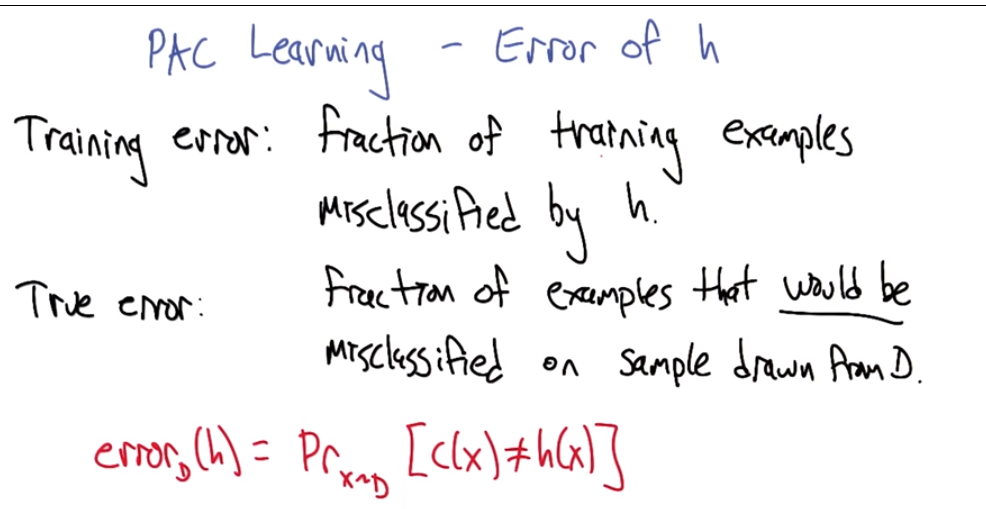 PAC Learning - Error of h
Training error: fraction of training examples
misclassified by h.
True error: fraction of examples that would be
misclassified on sample drawn from D.
error_D(h) = Pr_{x~D} [c(x)≠h(x)]